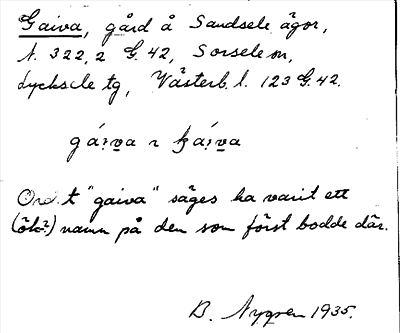 Gaiva, gård å Sandsele ägor,
N. 322,2 G. 42, Sorsele sn,
Lycksele tg, Västerb. l. 123 G. 42.
Ordet "gaiva" säges ha varit ett
namn på den som först bodde där.
B. Nygren 1935.